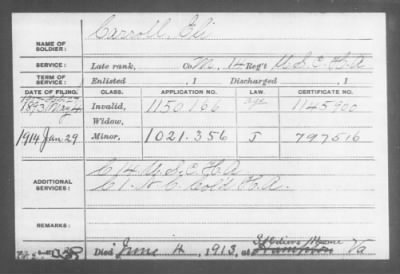 Carroll, Eli
NAME OF SOLDIER:
SERVICE: Late rank, Co. M, 14 Reg't U.S.C.H.A
TERM OF SERVICE: Enlisted , 1 Discharged , 1
DATE OF FILING. CLASS. APPLICATION NO. LAW. CERTIFICATE NO.
1893 May Invalid, 1150166 age 1145900
Widow,
1914 Jan 29 Minor, 1021.356 J 797516
ADDITIONAL SERVICES: C 14 U.S.C.H.A.
C 1. N.C. Cold H.A.
REMARKS:
Died June 4, 1913, at Soldiers Home Va